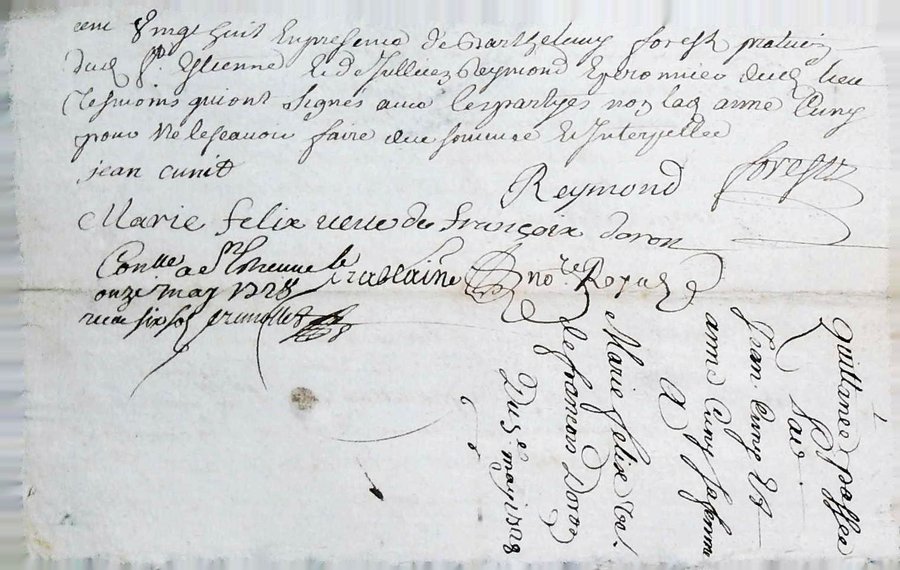 cent vingt huit En presence de Barthelemy forest praticien
dud St Estienne Et de Jullien Reymond Eperonnier dud lieu
tesmoins qui ont signés avec les partyes non lad anne Cuny
pour ne le scavoir faire due sommée Et Interpellée
jean cunit
Reymond forest
Marie felix veuve de françoix doron
Con.lle a St Etienne le
onze may 1728
receu six sol
no.re Royal
quittance passée
Par
Jean Cuny Et
anne Cuny sa femme
A
Marie felix ve.
de francois Doron
Du 5e may 1728